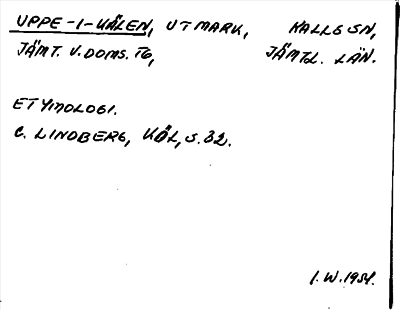 UPPE-I-KÄLEN, UTMARK, KALLS SN,
JÄMT. V. DOMS. TG, JÄMTL. LÄN.
ETYMOLOGI.
C. LINDBERG, KÖL, S. 32.
I.W. 1954.